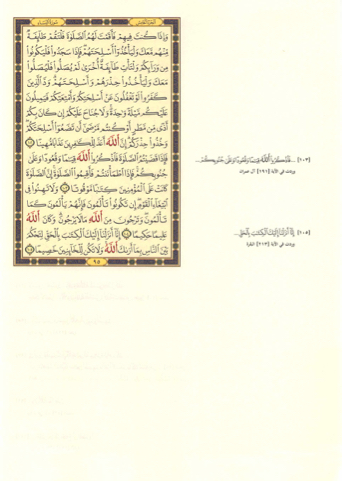 الجزء الخامس سورة النساء
وَإِذَا كُنتَ فِيهِمْ فَأَقَمْتَ لَهُمُ الصَّلَوٰةَ فَلْتَقُمْ طَائِفَةٌ
مِّنْهُم مَّعَكَ وَلْيَأْخُذُوا أَسْلِحَتَهُمْ فَإِذَا سَجَدُوا فَلْيَكُونُوا
مِن وَرَائِكُمْ وَلْتَأْتِ طَائِفَةٌ أُخْرَىٰ لَمْ يُصَلُّوا فَلْيُصَلُّوا
مَعَكَ وَلْيَأْخُذُوا حِذْرَهُمْ وَأَسْلِحَتَهُمْ وَدَّ الَّذِينَ
كَفَرُوا لَوْ تَغْفُلُونَ عَنْ أَسْلِحَتِكُمْ وَأَمْتِعَتِكُمْ فَيَمِيلُونَ
عَلَيْكُم مَّيْلَةً وَاحِدَةً وَلَا جُنَاحَ عَلَيْكُمْ إِن كَانَ بِكُمْ
أَذًى مِّن مَّطَرٍ أَوْ كُنتُم مَّرْضَىٰ أَن تَضَعُوا أَسْلِحَتَكُمْ
وَخُذُوا حِذْرَكُمْ إِنَّ اللَّهَ أَعَدَّ لِلْكَافِرِينَ عَذَابًا مُّهِينًا
فَإِذَا قَضَيْتُمُ الصَّلَوٰةَ فَاذْكُرُوا اللَّهَ قِيَامًا وَقُعُودًا وَعَلَىٰ
جُنُوبِكُمْ فَإِذَا اطْمَأْنَنتُمْ فَأَقِيمُوا الصَّلَوٰةَ إِنَّ الصَّلَوٰةَ
كَانَتْ عَلَى الْمُؤْمِنِينَ كِتَابًا مَّوْقُوتًا وَلَا تَهِنُوا فِي
ابْتِغَاءِ الْقَوْمِ إِن تَكُونُوا تَأْلَمُونَ فَإِنَّهُمْ يَأْلَمُونَ كَمَا
تَأْلَمُونَ وَتَرْجُونَ مِنَ اللَّهِ مَا لَا يَرْجُونَ وَكَانَ اللَّهُ
عَلِيمًا حَكِيمًا إِنَّا أَنزَلْنَا إِلَيْكَ الْكِتَابَ بِالْحَقِّ لِتَحْكُمَ
بَيْنَ النَّاسِ بِمَا أَرَاكَ اللَّهُ وَلَا تَكُن لِّلْخَائِنِينَ خَصِيمًا
٩٥
[١٠٣] ...فَاذْكُرُوا اللَّهَ قِيَامًا وَقُعُودًا وَعَلَىٰ جُنُوبِكُمْ...
وردت في الآية [١٩١] آل عمران
[١٠٥] إِنَّا أَنزَلْنَا إِلَيْكَ الْكِتَابَ بِالْحَقِّ...
وردت في الآية [٢١٣] البقرة